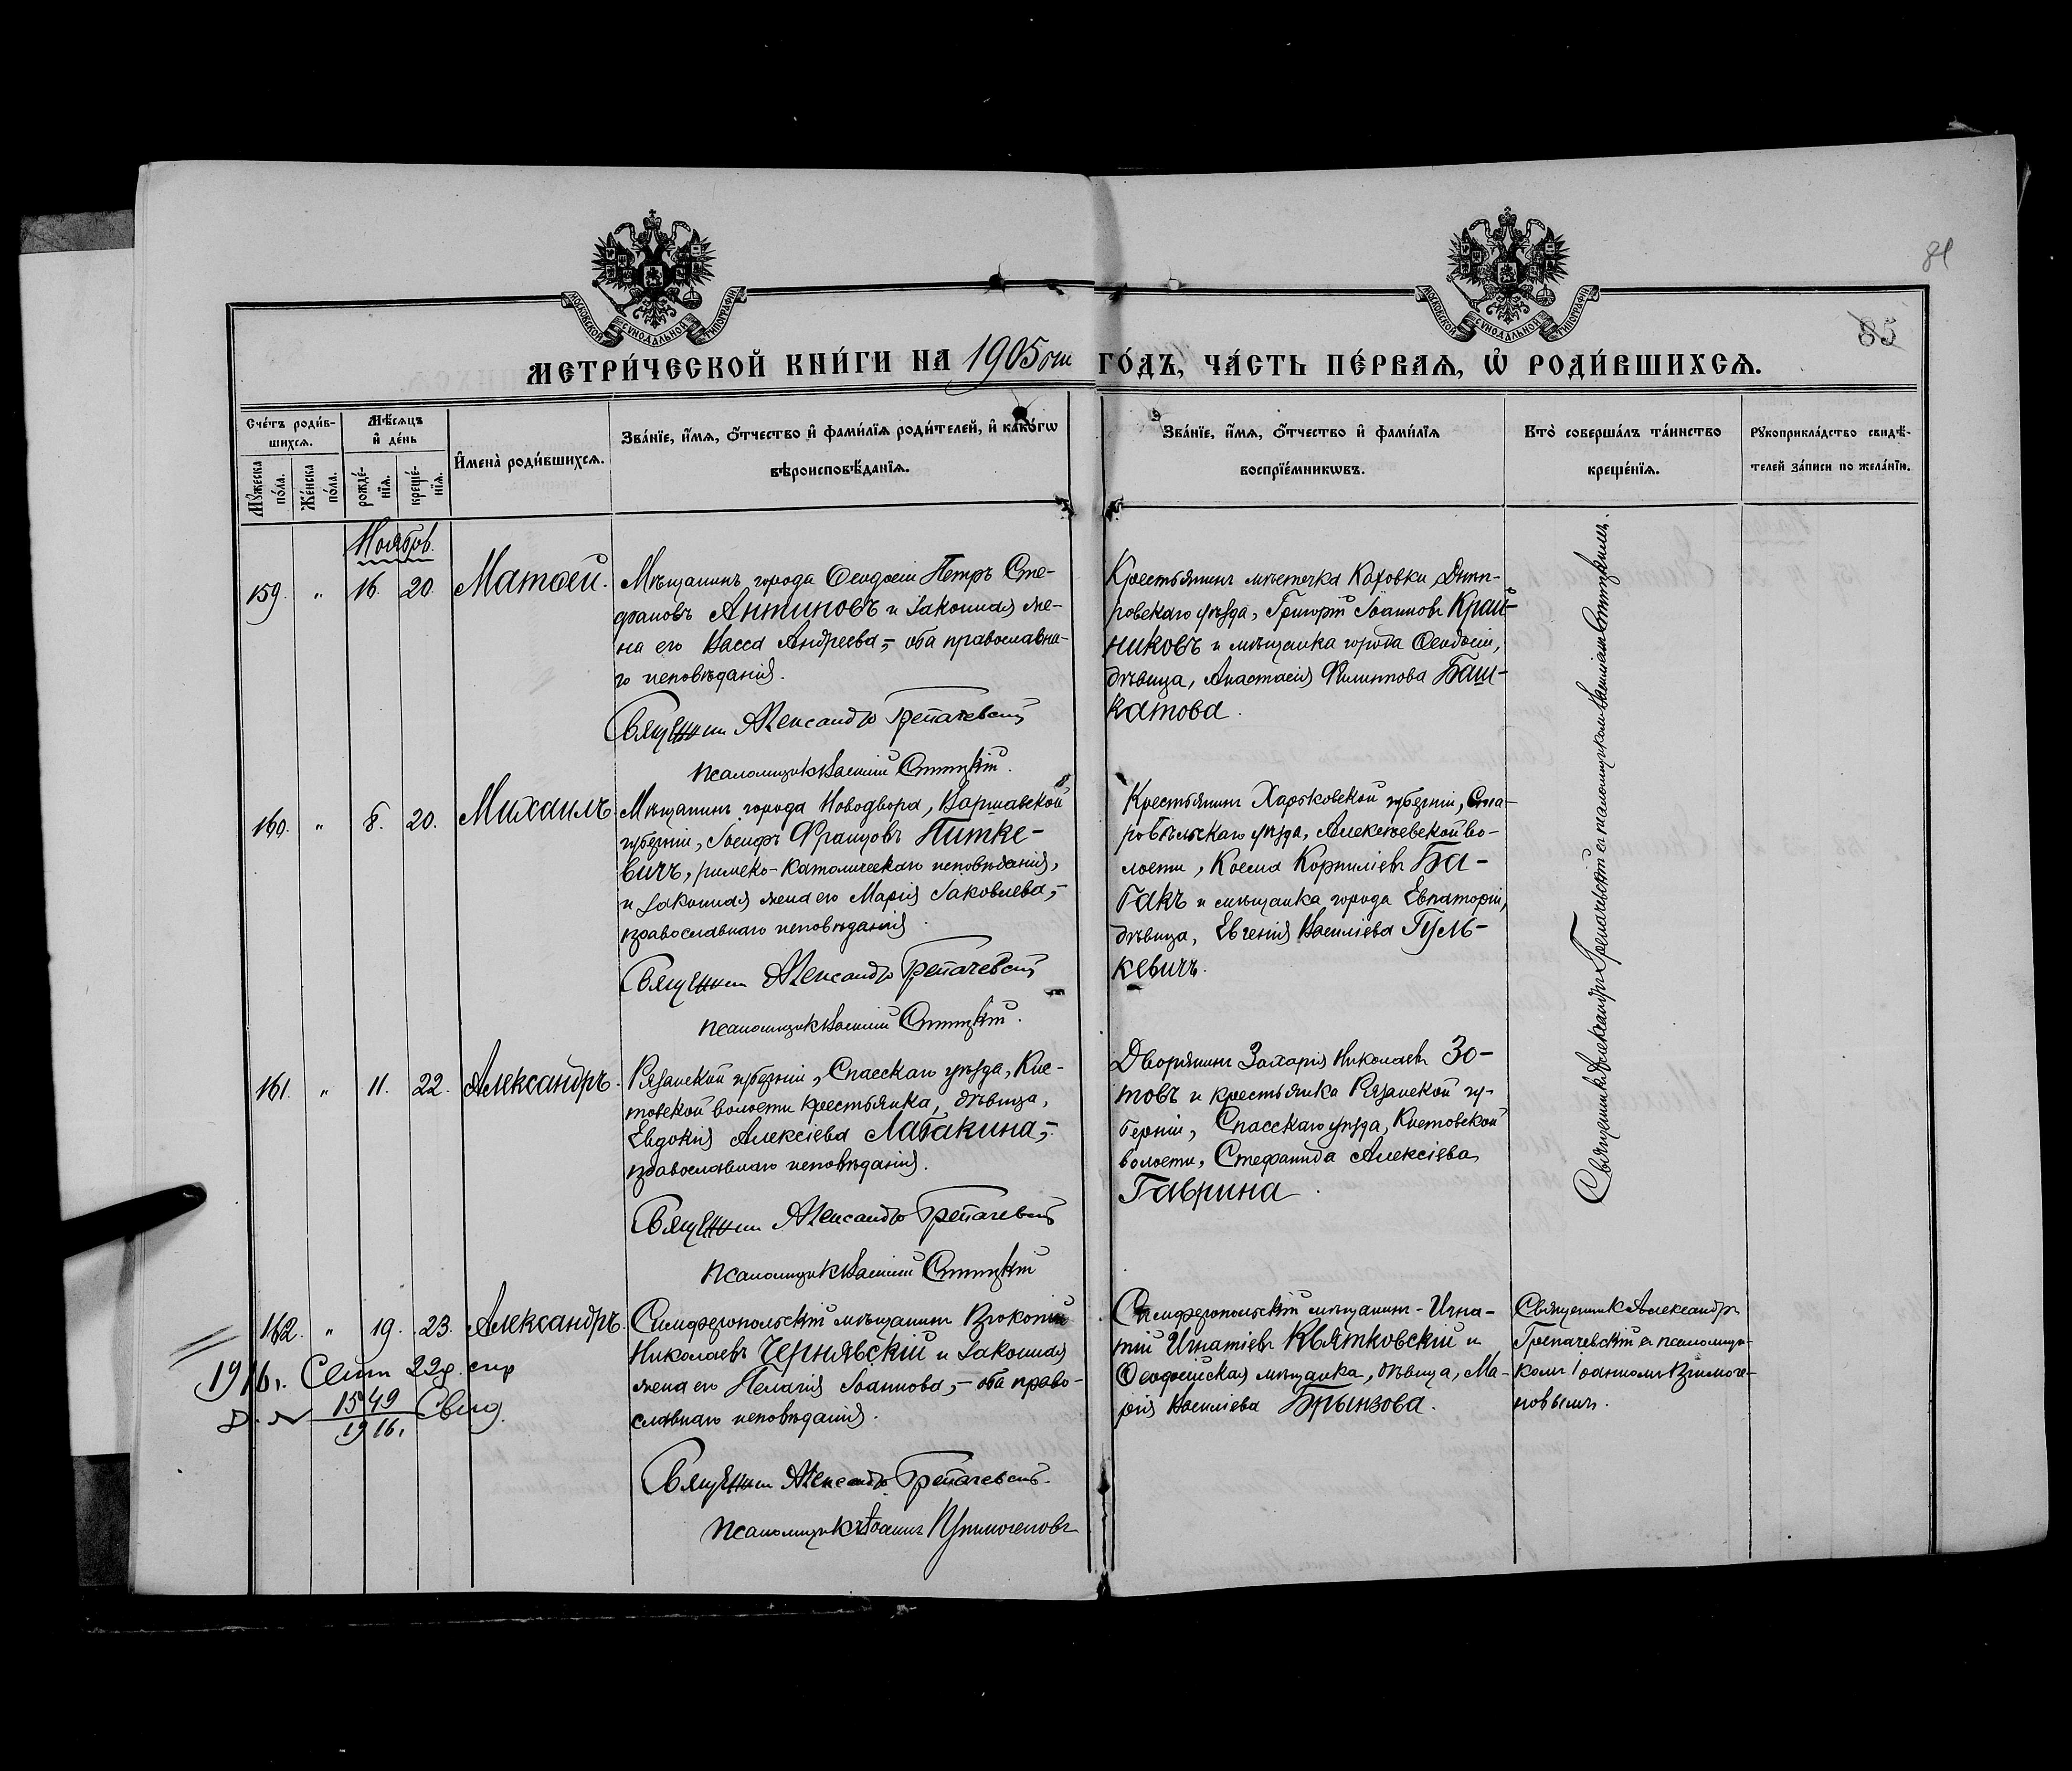 81
85
МОСКОВСКОЙ СУНОДАЛЬНОЙ ТИПОГРАФІИ
МОСКОВСКОЙ СУНОДАЛЬНОЙ ТИПОГРАФІИ
МЕТРИ́ЧЕСКОЙ КНИ́ГИ НА 1905ый ГО́ДЪ, ЧА́СТЬ ПЕ́РВАѦ, Ѡ РОДИ́ВШИХСѦ.
Сче́тъ роди́в-
шихсѧ.
Мꙋжеска по́ла.
Же́нска по́ла.
Мѣ́сѧцъ
и҆ де́нь
рожде́-
нїѧ.
креще́-
нїѧ.
И҆мена̀ роди́вшихсѧ.
Зва́нїе, и҆́мѧ, ѻ҆́тчество и҆ фами́лїѧ роди́телей, и҆ како́гѡ
вѣроисповѣ́данїѧ.
Зва́нїе, и҆́мѧ, ѻ҆́тчество и҆ фами́лїѧ
воспрїе́мникѡвъ.
Кто̀ соверша́лъ та́инство
креще́нїѧ.
Рꙋкоприкла́дство свидѣ́-
телей за́писи по жела́нїю.
Ноябрь.
159. " 16. 20. Матѳей.
Мѣщанинъ города Ѳеодосіи Петръ Сте-
фановъ Антиновъ и законная же-
на его Васса Андреева,- оба православна-
го исповѣданія.
Священникъ Александръ Грепачевскій
псаломщикъ Василій
Крестьянинъ мѣстечка Каховки, Днѣп-
ровскаго уѣзда, Григорій Іоанновъ Край-
никовъ и мѣщанка города Ѳеодосіи,
дѣвица, Анастасія Филиппова Баш-
катова.
Священникъ Александръ Грепачевскій съ псаломщикомъ Василіемъ
160. " 8. 20. Михаилъ
Мѣщанинъ города Новодвора, Варшавской
губерніи, Іосифъ Францовъ Питке-
вичъ, римско-католическаго исповѣданія,
и законная жена его Марія Іаковлева,-
православнаго исповѣданія
Священникъ Александръ Грепачевскій
псаломщикъ Василій
Крестьянинъ Харьковской губерніи, Ста-
робѣльскаго уѣзда, Алексѣевской во-
лости, Косма Корниліевъ Ба-
гакъ и мѣщанка города Евпаторіи,
дѣвица, Евгенія Василіева Гуль-
кевичъ.
161. " 11. 22. Александръ.
Рязанской губерніи, Спасскаго уѣзда, Кис-
товской волости крестьянка, дѣвица,
Евдокія Алексіева Лабакина,-
православнаго исповѣданія.
Священникъ Александръ Грепачевскій
псаломщикъ Василій
Дворянинъ Захарія Николаевъ Зо-
товъ и крестьянка Рязанской гу-
берніи, Спасскаго уѣзда, Кистовской
волости, Стефанида Алексіева
Гаврина.
162. " 19. 23. Александръ.
Симферопольскій мѣщанинъ Прокопій
Николаевъ Чернявскій и законная
жена его Пелагія Іоаннова,- оба право-
славнаго исповѣданія.
Священникъ Александръ Грепачевскій.
псаломщикъ Іоаннъ Примогеновъ
Симферопольскій мѣщанинъ- Игна-
тій Игнатіевъ Квятковскій и
Ѳеодосійская мѣщанка, дѣвица, Ма-
рія Василіева Брынзова.
Священникъ Александръ
Грепачевскій съ псаломщи-
комъ Іоанномъ Примоге-
новымъ.
1916г. Сент 22д.
1549
1916.
Свид.